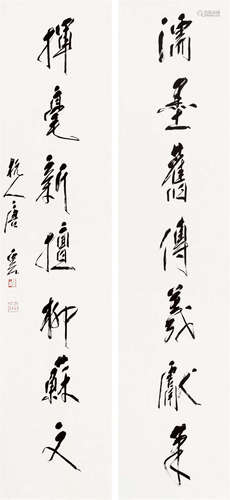 濡墨舊傳羲獻
揮毫新擅柳蘇文
杭人唐雲